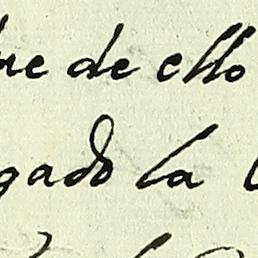 re de ello
gado la